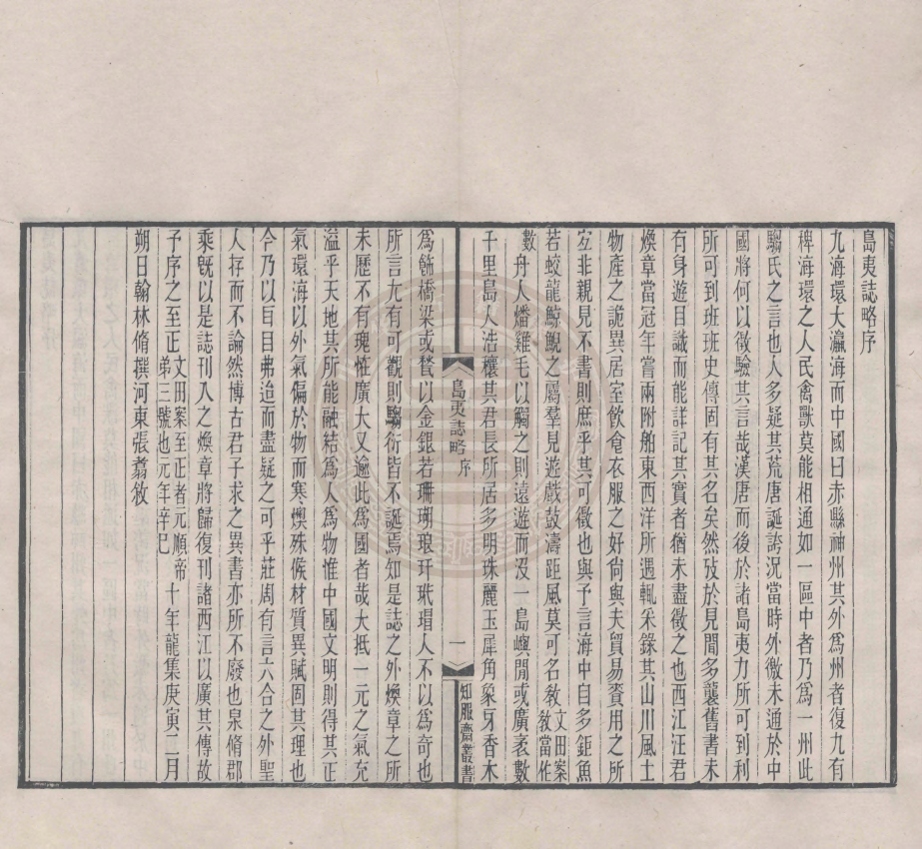 島夷誌略序
九海環大瀛海而中國曰赤縣神州其外為州者復九有
裨海環之人民禽獸莫能相通如一區中者乃為一州此
騶氏之言也人多疑其荒唐誕誇況當時外徼未通於中
國將何以徵驗其言哉漢唐而後於諸島夷力所可到利
所可到班班史傳固有其名矣然攷於見聞多襲舊書未
有身遊目識而能詳記其實者猶未盡徵之也西江汪君
煥章當冠年嘗兩附舶東西洋所過輒采錄其山川風土
物產之詭異居室飲食衣服之好尚與夫貿易賚用之所
宜非親見不書則庶乎其可徵也與予言海中自多鉅魚
若蛟龍鯨鯢之屬羣見遊戲鼓濤距風莫可名敎文田案敎當作
數舟人燔雞毛以觸之則遠遊而沒一島嶼閒或廣袤數
千里島人浩穰其君長所居多明珠麗玉犀角象牙香木
島夷誌略 序
一
知服齋叢書
為飾橋梁或甃以金銀若珊瑚琅玕玳瑁人不以為奇也
所言尤有可觀則騶衍皆不誕焉知是誌之外煥章之所
未歷不有瑰怪廣大又逾此為國者哉大抵一元之氣充
溢乎天地其所能融結為人為物惟中國文明則得其正
氣環海以外氣偏於物而寒燠殊候材質異賦固其理也
今乃以耳目弗迨而盡疑之可乎莊周有言六合之外聖
人存而不論然博古君子求之異書亦所不廢也泉脩郡
乘旣以是誌刊入之煥章將歸復刊諸西江以廣其傳故
予序之至正文田案至正者元順帝弟三號也元年辛巳十年龍集庚寅二月
朔日翰林脩撰河東張翥敘